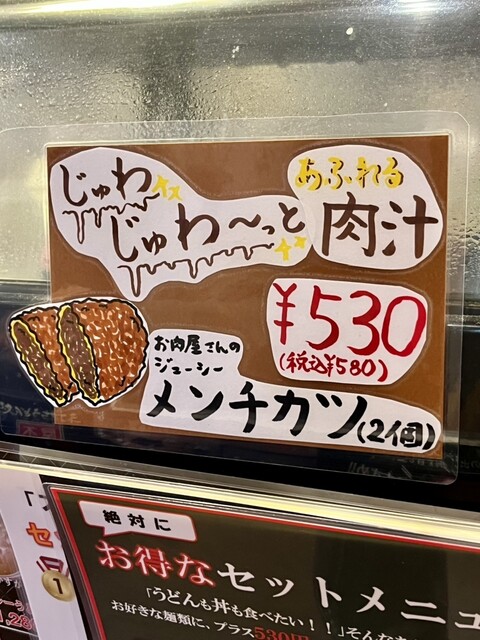 じゅわ
じゅわ〜っと
あふれる
肉汁
¥530
(税込¥580)
お肉屋さんの
ジューシー
メンチカツ(2個)
絶対に
お得なセットメニュ
「うどんも丼も食べたい！！」そんな
お好きな麺類に、プラス530円
セ
1
1,28